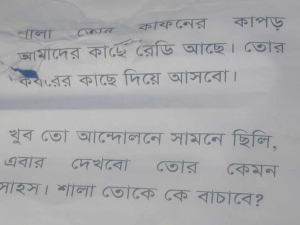 শালা তোর কাফনের কাপড়
আমাদের কাছে রেডি আছে। তোর
কবরের কাছে দিয়ে আসবো।
খুব তো আন্দোলনে সামনে ছিলি,
এবার দেখবো তোর কেমন
সাহস। শালা তোকে কে বাচাবে?